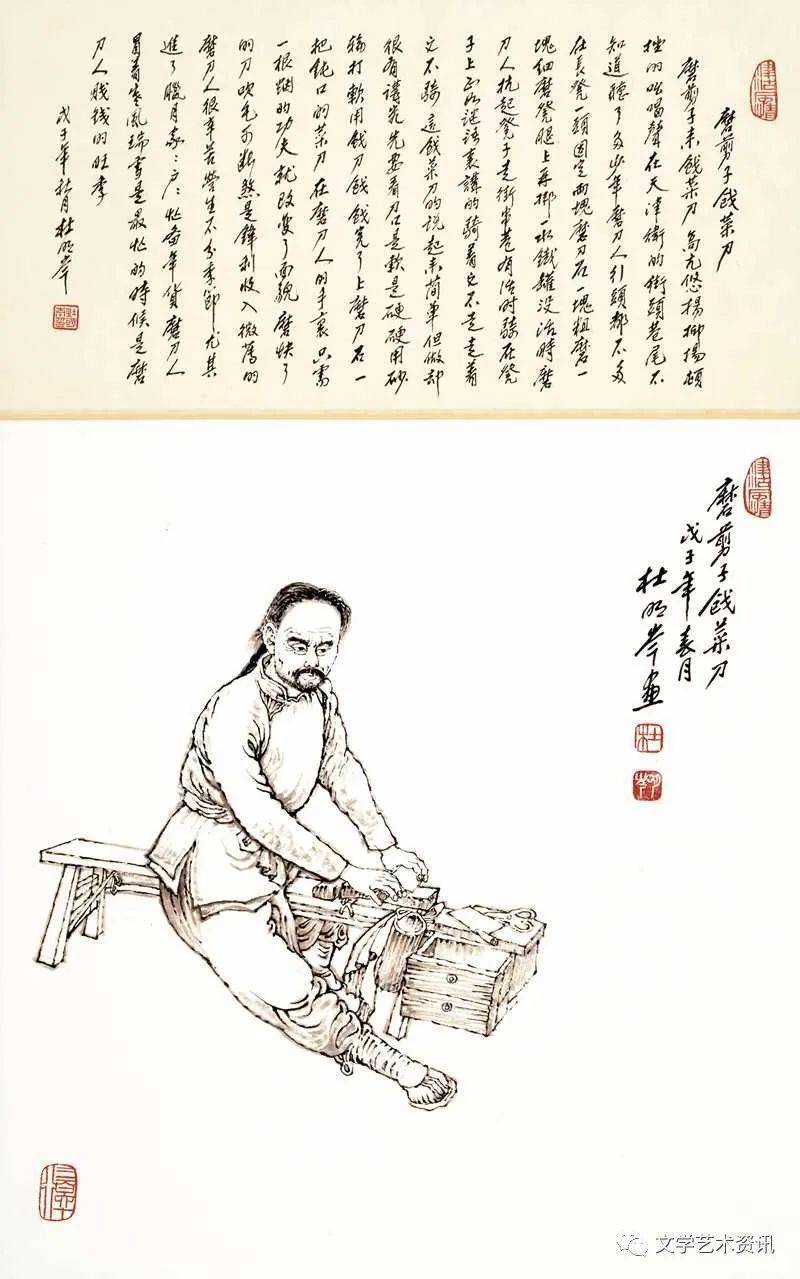 磨剪子戗菜刀
磨剪子来戗菜刀高亢悠扬抑扬顿
挫的吆喝聲在天津衛的街頭巷尾不
知道聽了多少年磨刀人引頭都不多
在長凳一頭固定两塊磨刀石一塊粗磨一
塊细磨凳腿上再挪一水鐵罐没活時磨
刀人抗起凳子走街串巷有活时骑在凳
子上正如謎語裏講的骑着它不走走着
它不骑這戗菜刀的说起来简单但做却
很有講究先要看刀口是軟是硬硬用砂
轮打軟用戗刀戗戗完了上磨刀石一
把钝口的菜刀在磨刀人的手裏只需
一根烟的功夫就改变了面貌磨快了
的刀吹毛可断煞是鋒利收入微薄的
磨刀人很辛苦營生不分季節尤其
進了臘月家家户户忙备年貨磨刀人
冒着寒風瑞雪是最忙的時候是磨
刀人賺錢的旺季
戊子年秋月杜明岑
磨剪子戗菜刀
戊子年春月
杜明岑画
文学艺术资讯